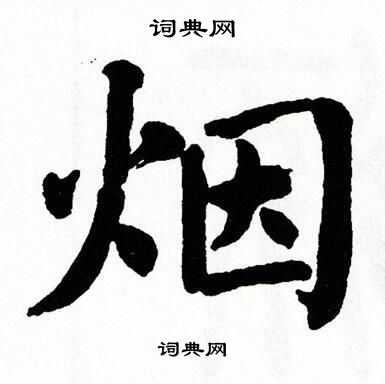 词典网
烟
词典网